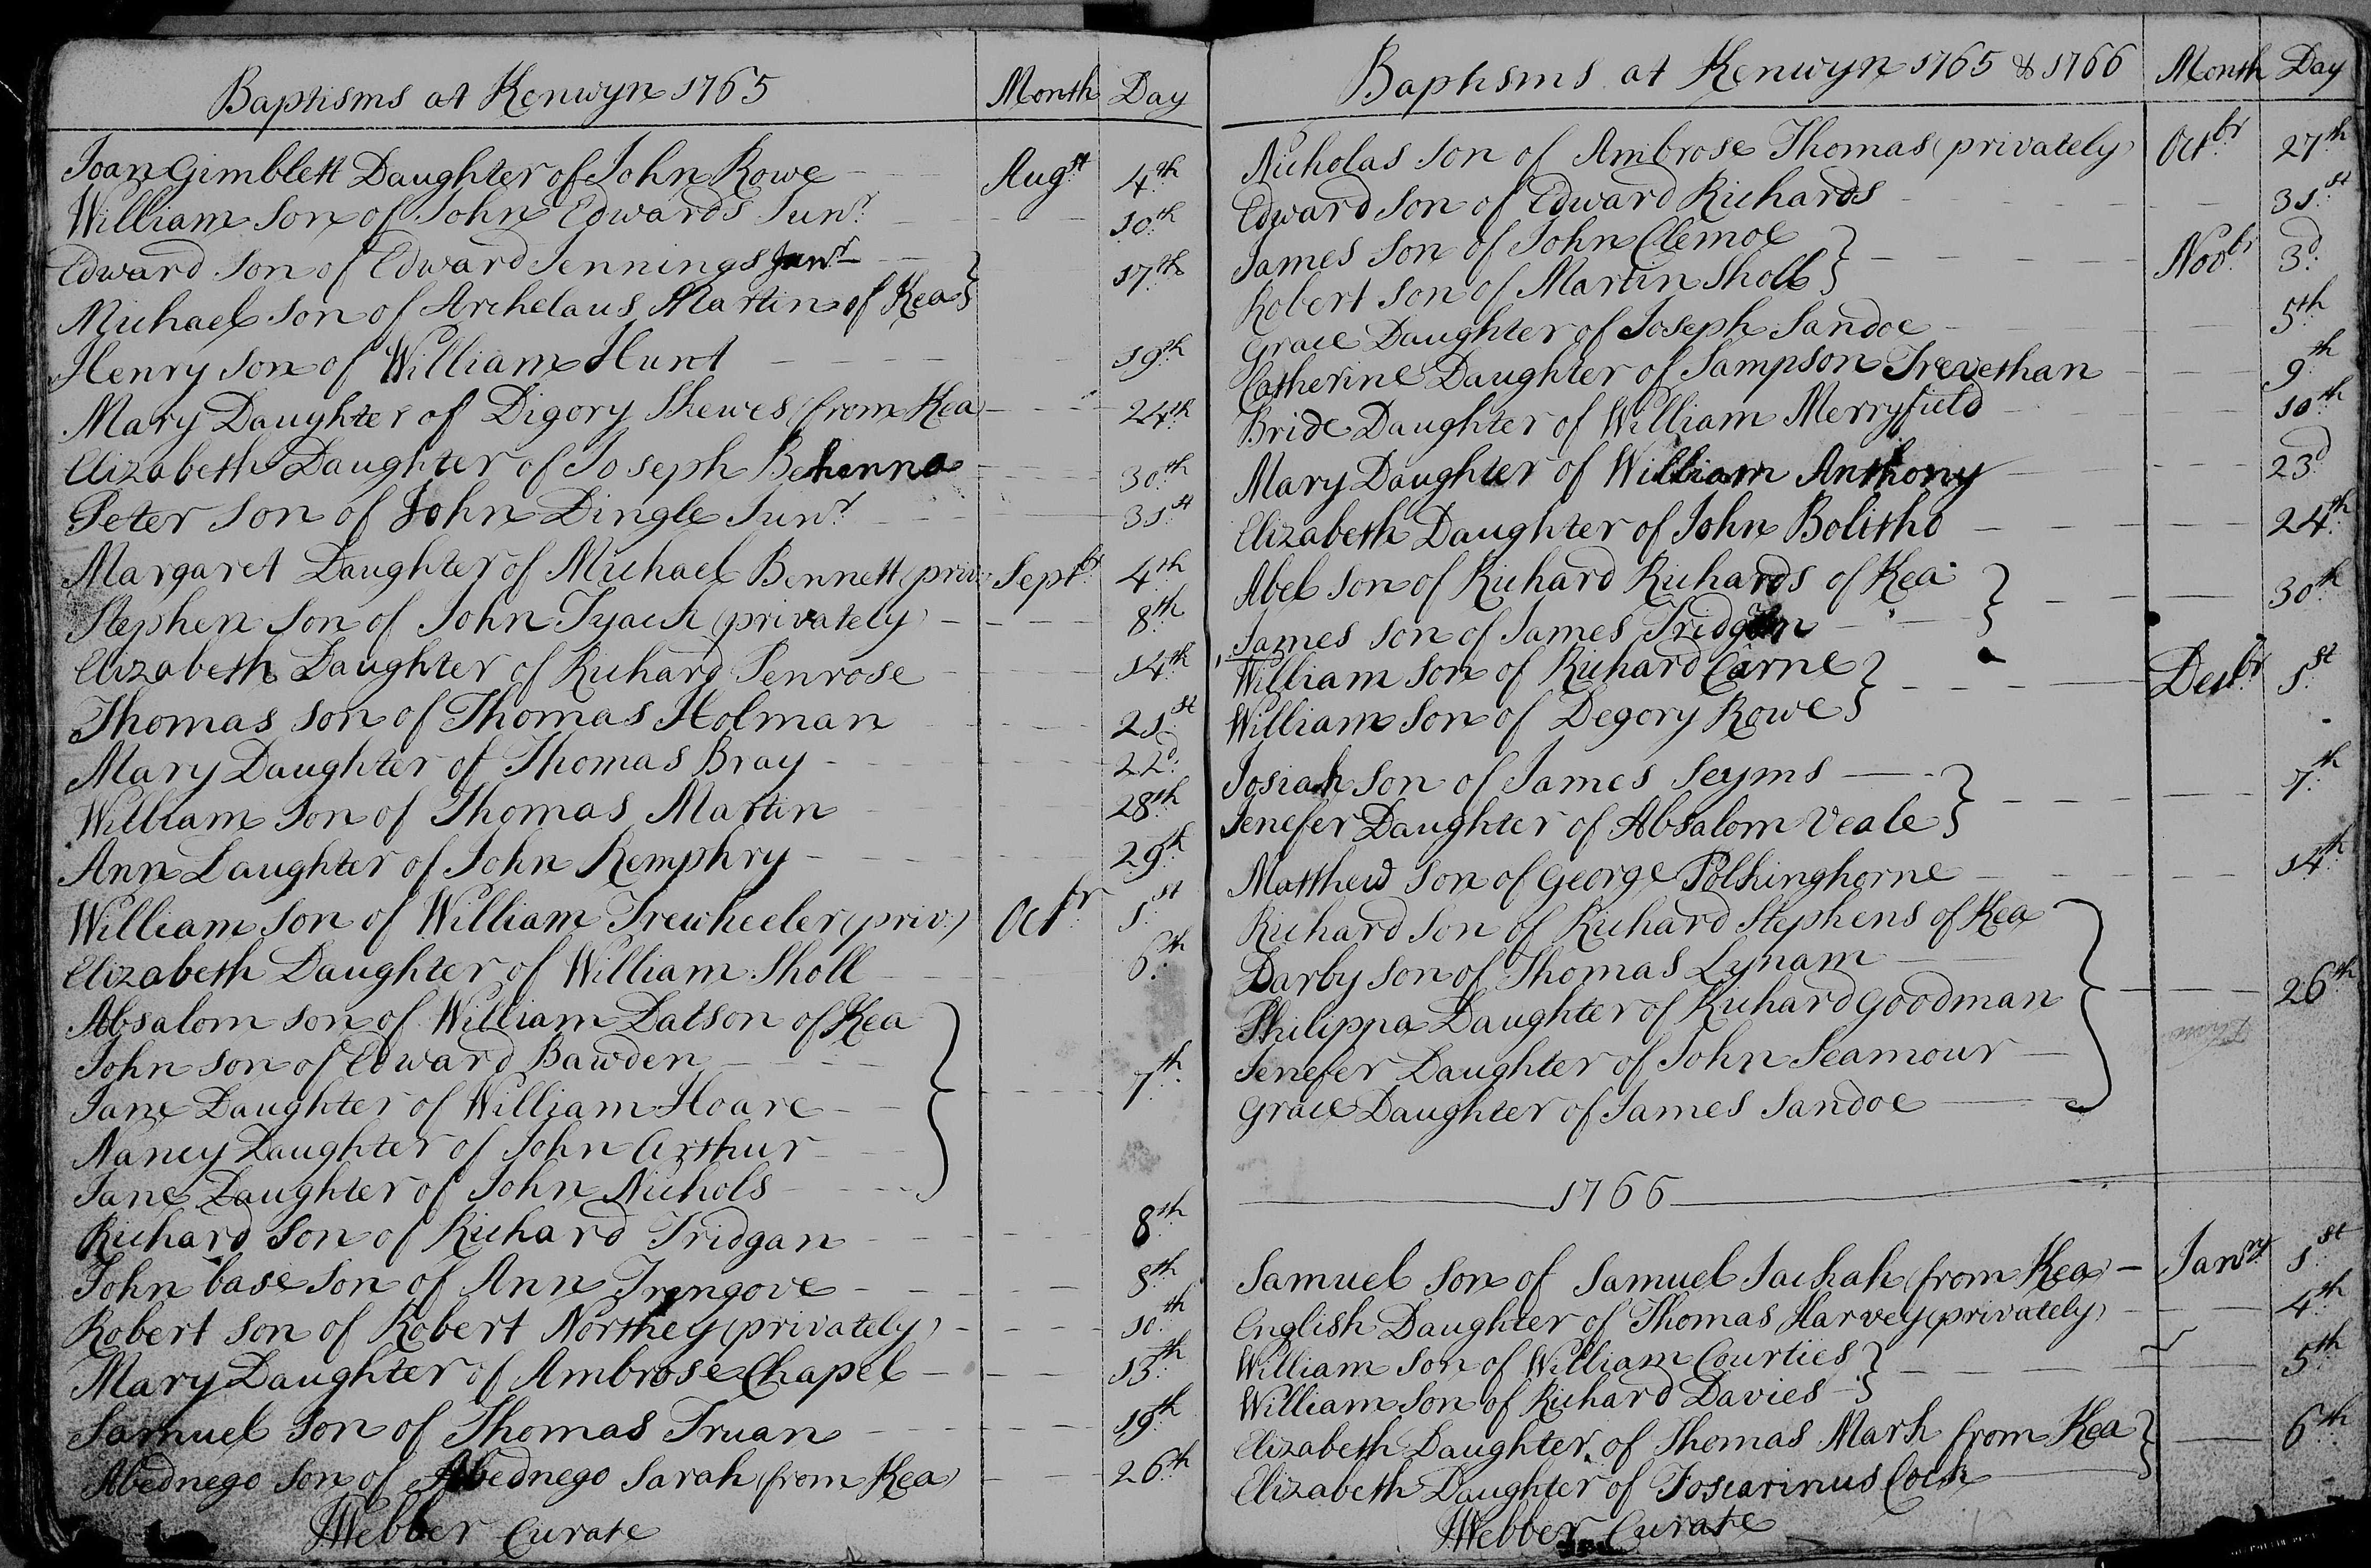 Baptisms at Kenwyn 1765 Month Day
Joan Gimblett Daughter of John Rowe Augst 4th
William Son of John Edwards Junr 10th
Edward Son of Edward Jennings Junr
Michael Son of Archelaus Martin of Kea 17th
Henry Son of William Hunt 19th
Mary Daughter of Digory Skewes (from Kea) 24th
Elizabeth Daughter of Joseph Behenna 30th
Peter Son of John Dingle Junr 31st
Margaret Daughter of Michael Bennett (priv: Septbr 4th
Stephen Son of John Tyack (privately) 8th
Elizabeth Daughter of Richard Penrose 14th
Thomas Son of Thomas Holman 21st
Mary Daughter of Thomas Bray 22d
William Son of Thomas Martin 28th
Ann Daughter of John Remphry 29th
William Son of William Trewheeler (priv:) Octbr 1st
Elizabeth Daughter of William Sholl 6th
Absalom Son of William Datson of Kea
John Son of Edward Bawden
Jane Daughter of William Hoare 7th
Nancy Daughter of John Arthur
Jane Daughter of John Nichols
Richard Son of Richard Tridgan 8th
John base Son of Ann Trengove 8th
Robert Son of Robert Northey (privately) 10th
Mary Daughter of Ambrose Chapel 13th
Samuel Son of Thomas Truan 19th
Abednego Son of Abednego Sarah (from Kea) 26th
JWebber Curate
Baptisms at Kenwyn 1765 & 1766 Month Day
Nicholas Son of Ambrose Thomas (privately) Octbr 27th
Edward Son of Edward Richards 31st
James Son of John Clemoe Novbr 3d
Robert Son of Martin Sholl
Grace Daughter of Joseph Sandoe 5th
Catherine Daughter of Sampson Trevethan 9th
Bride Daughter of William Merryfield 10th
Mary Daughter of William Anthony 23d
Elizabeth Daughter of John Bolitho 24th
Abel Son of Richard Richards of Kea 30th
James Son of James
William Son of Richard Carne Decbr 1st
William Son of Degory Rowe
Josiah Son of James Seyms 7th
Jenefer Daughter of Absalom Veale
Matthew Son of George Polkinghorne 14th
Richard Son of Richard Stephens of Kea
Darby Son of Thomas Lynam
Philippa Daughter of Richard Goodman 26th
Jenefer Daughter of John Seamour
Grace Daughter of James Sandoe
1766
Samuel Son of Samuel Jackah (from Kea) Janry 1st
English Daughter of Thomas Harvey (privately) 4th
William Son of William Courties 5th
William Son of Richard Davies
Elizabeth Daughter of Thomas Mark from Kea 6th
Elizabeth Daughter of Toscarinus Cock
JWebber Curate